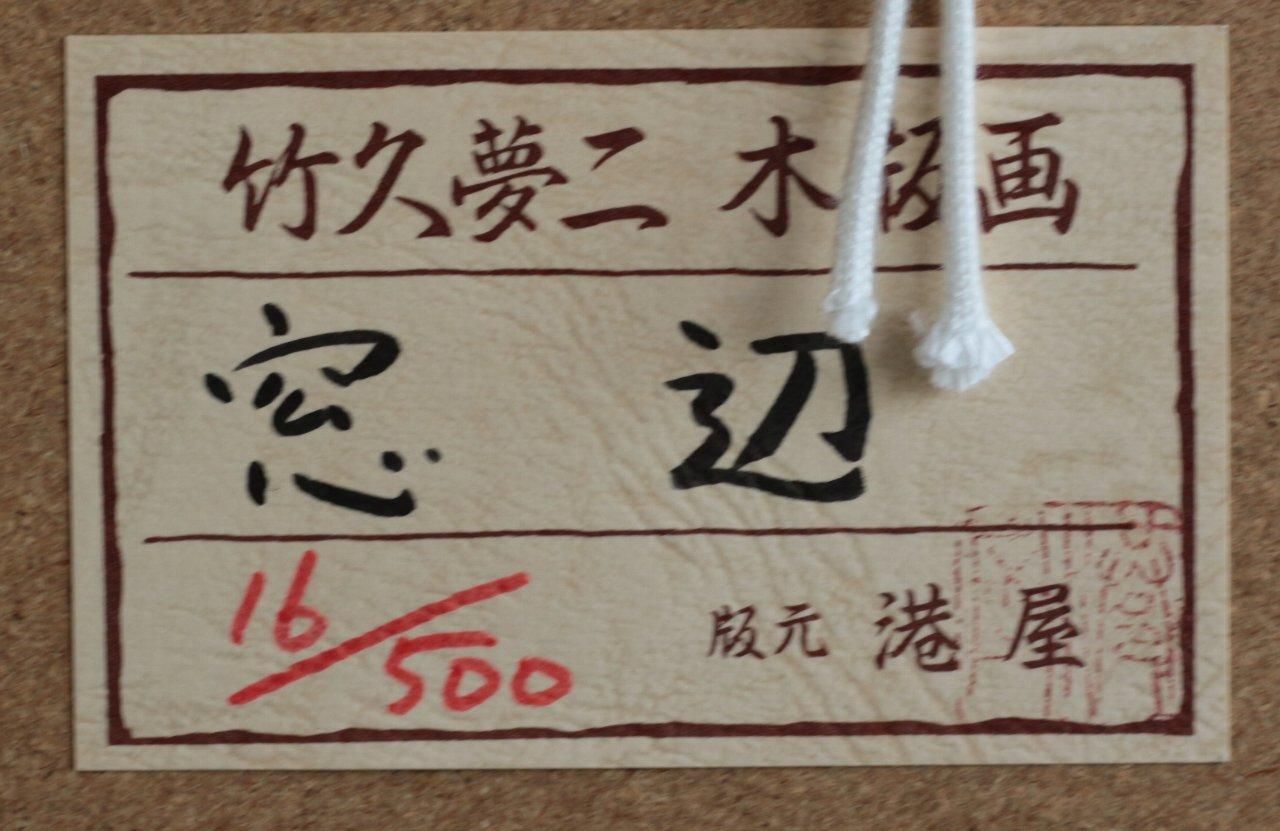 竹久夢二 木版画
窓辺
16/500
版元 港屋